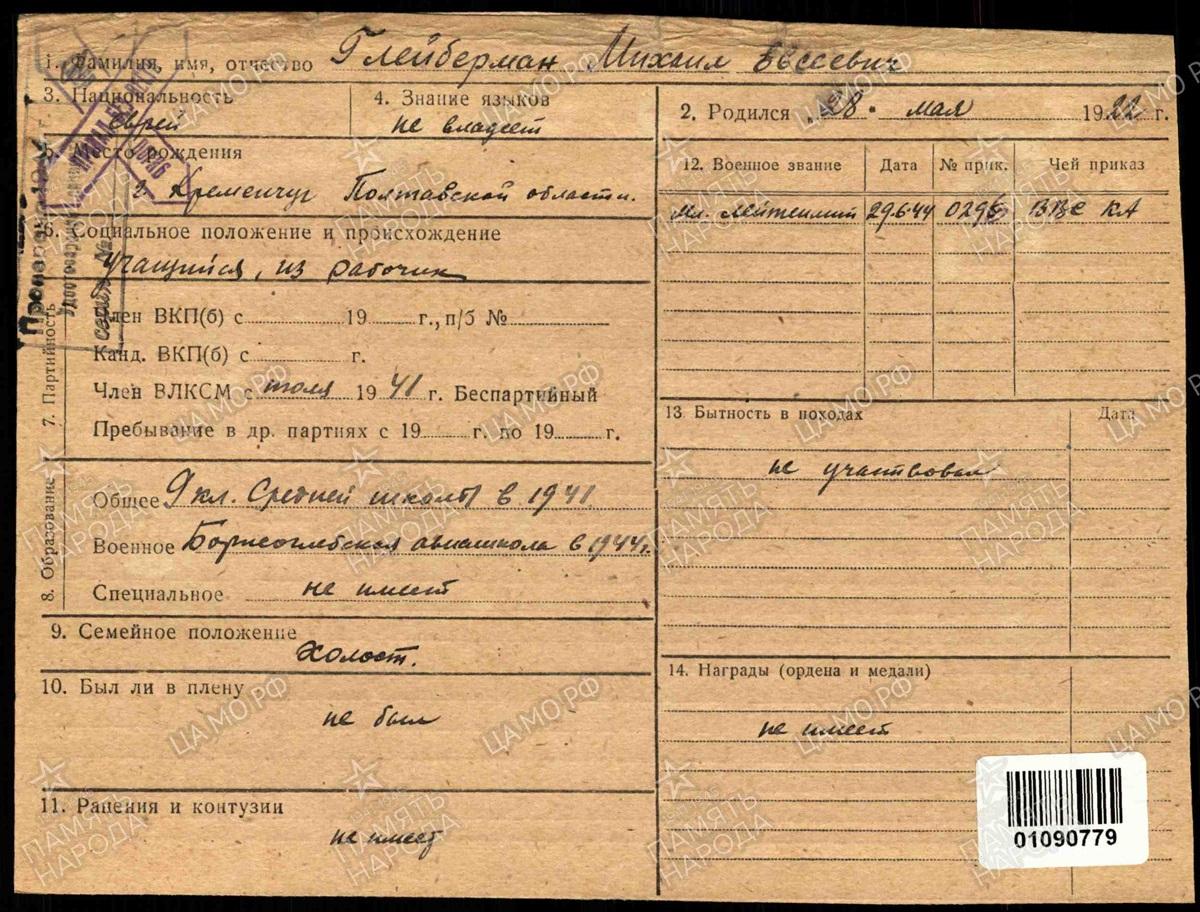 1. Фамилия, имя, отчество Глейберман Михаил Евсеевич
3. Национальность еврей
4. Знание языков не владеет
2. Родился "28" мая 1922 г.
5. Место рождения
г. Кременчуг Полтавской области.
6. Социальное положение и происхождение
учащийся, из рабочих
7. Партийность
Член ВКП(б) с 19 г., п/б №
Канд. ВКП(б) с г.
Член ВЛКСМ с июля 1941 г. Беспартийный
Пребывание в др. партиях с 19 г. по 19 г.
8. Образование
Общее 9 кл. Средней школы в 1941.
Военное Борисоглебская авиашкола в 1944г.
Специальное не имеет
9. Семейное положение
Холост.
10. Был ли в плену
не был
11. Ранения и контузии
не имеет
12. Военное звание Дата № прик. Чей приказ
Мл. лейтенант 29.6.44 0295 ВВС КА
13 Бытность в походах Дата
не участвовал
14. Награды (ордена и медали)
не имеет
01090779
ЦАМО.РФ
ПАМЯТЬ
НАРОДА